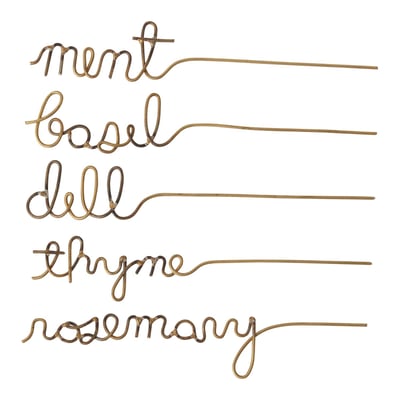 ment
basil
dell
thyme
rosemary